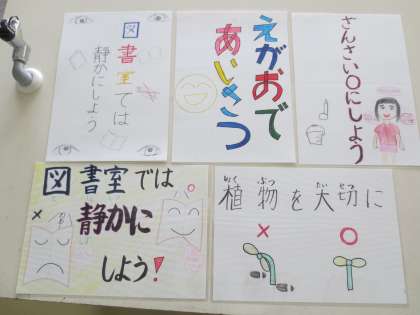 図書室では
静かにしよう
えがおで
あいさつ
さんさい○にしよう
図書室では
静かに
しよう!
しょく ぶつ たい せつ
植物を大切に
× ○